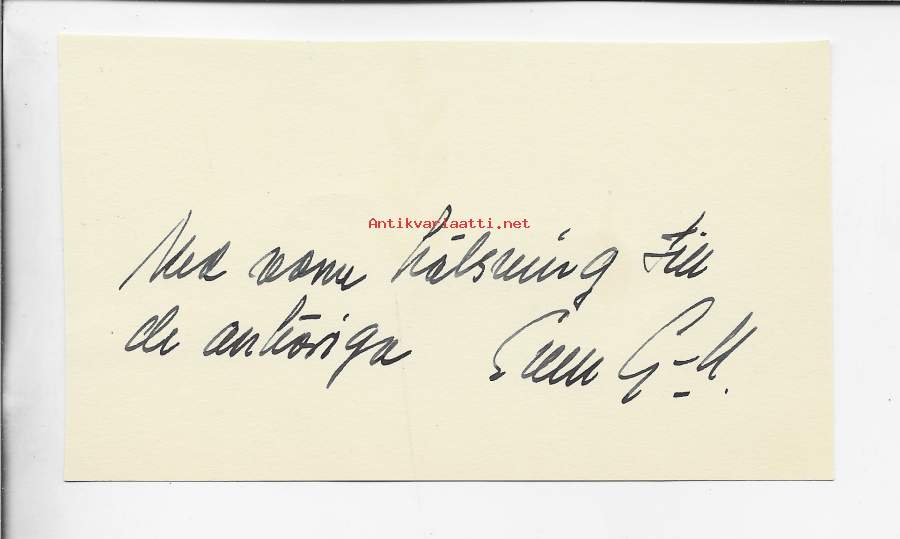 Antikvariaatti.net
Med varm hälsning till
de anhöriga Sven G-H.